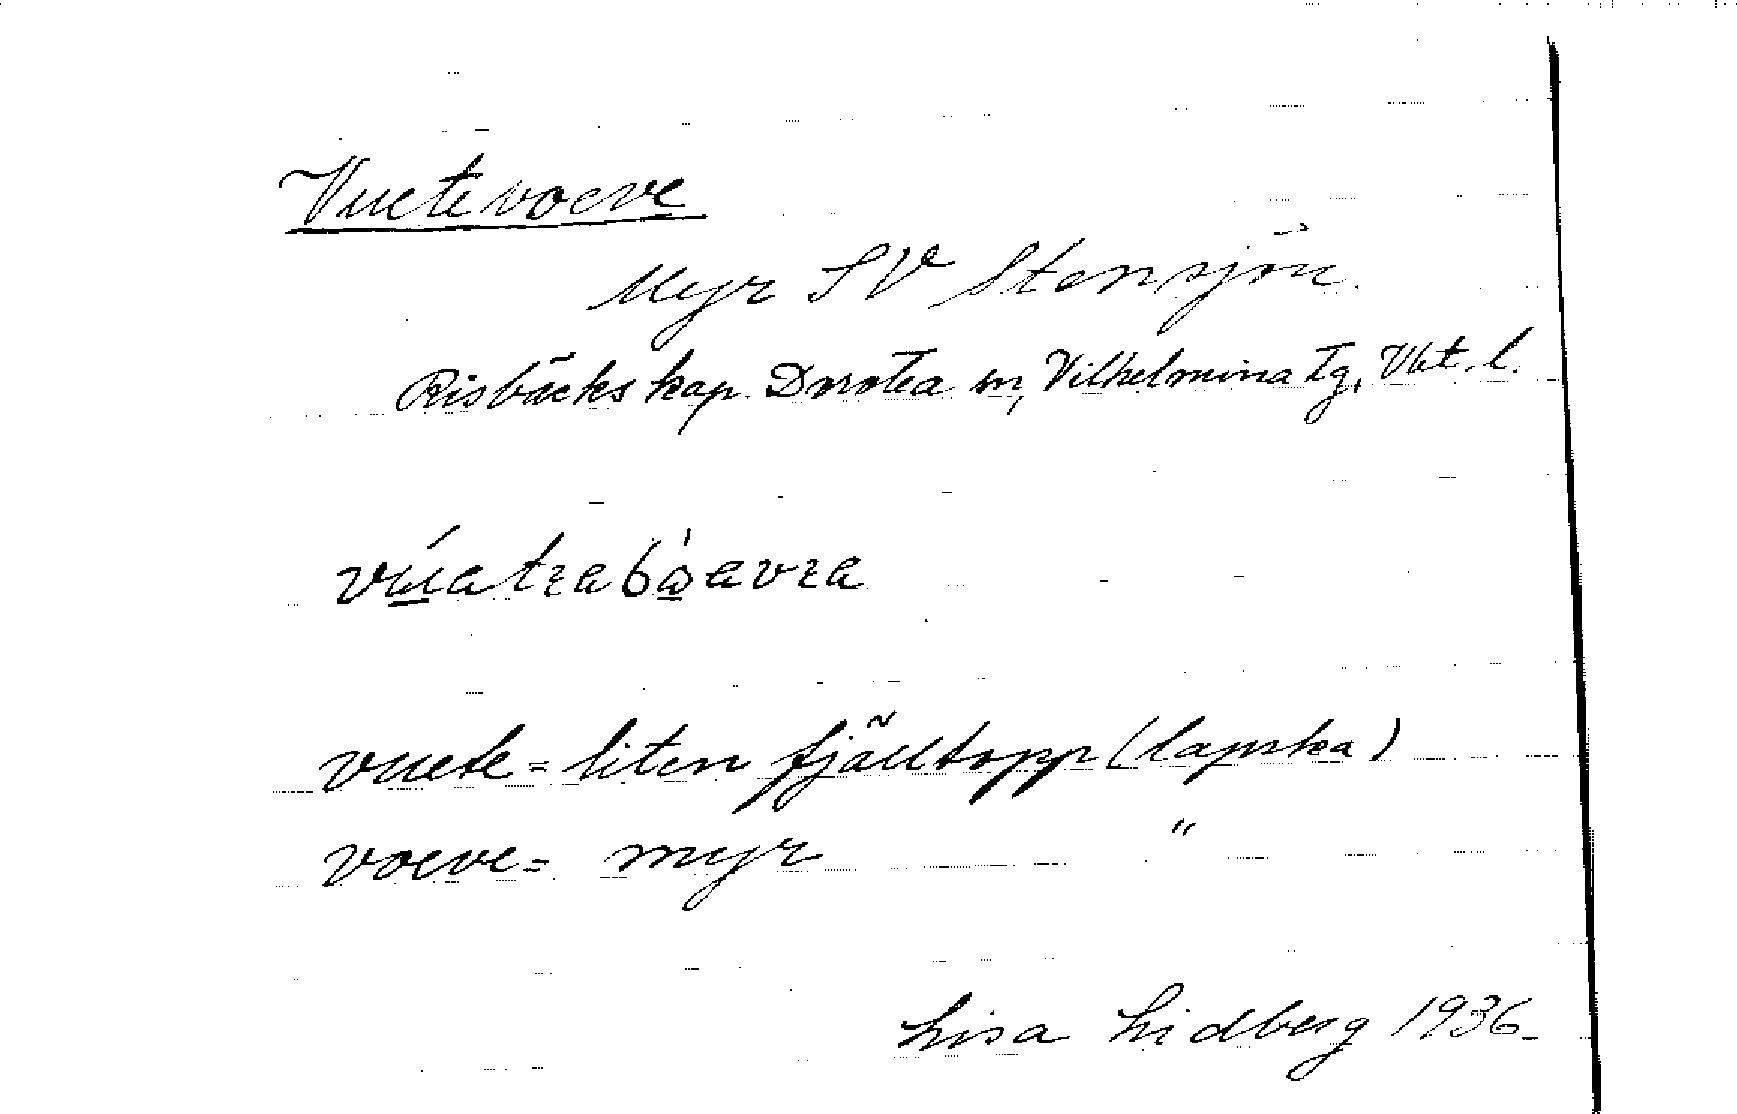 Vuetevoeve
Myr SV Stensjön.
Risbäcks kap. Dorotea sn, Vilhelmina tg, Vbt. l.
vuete = liten fjälltopp (lapska)
voeve = myr "
Lisa Lidberg 1936.